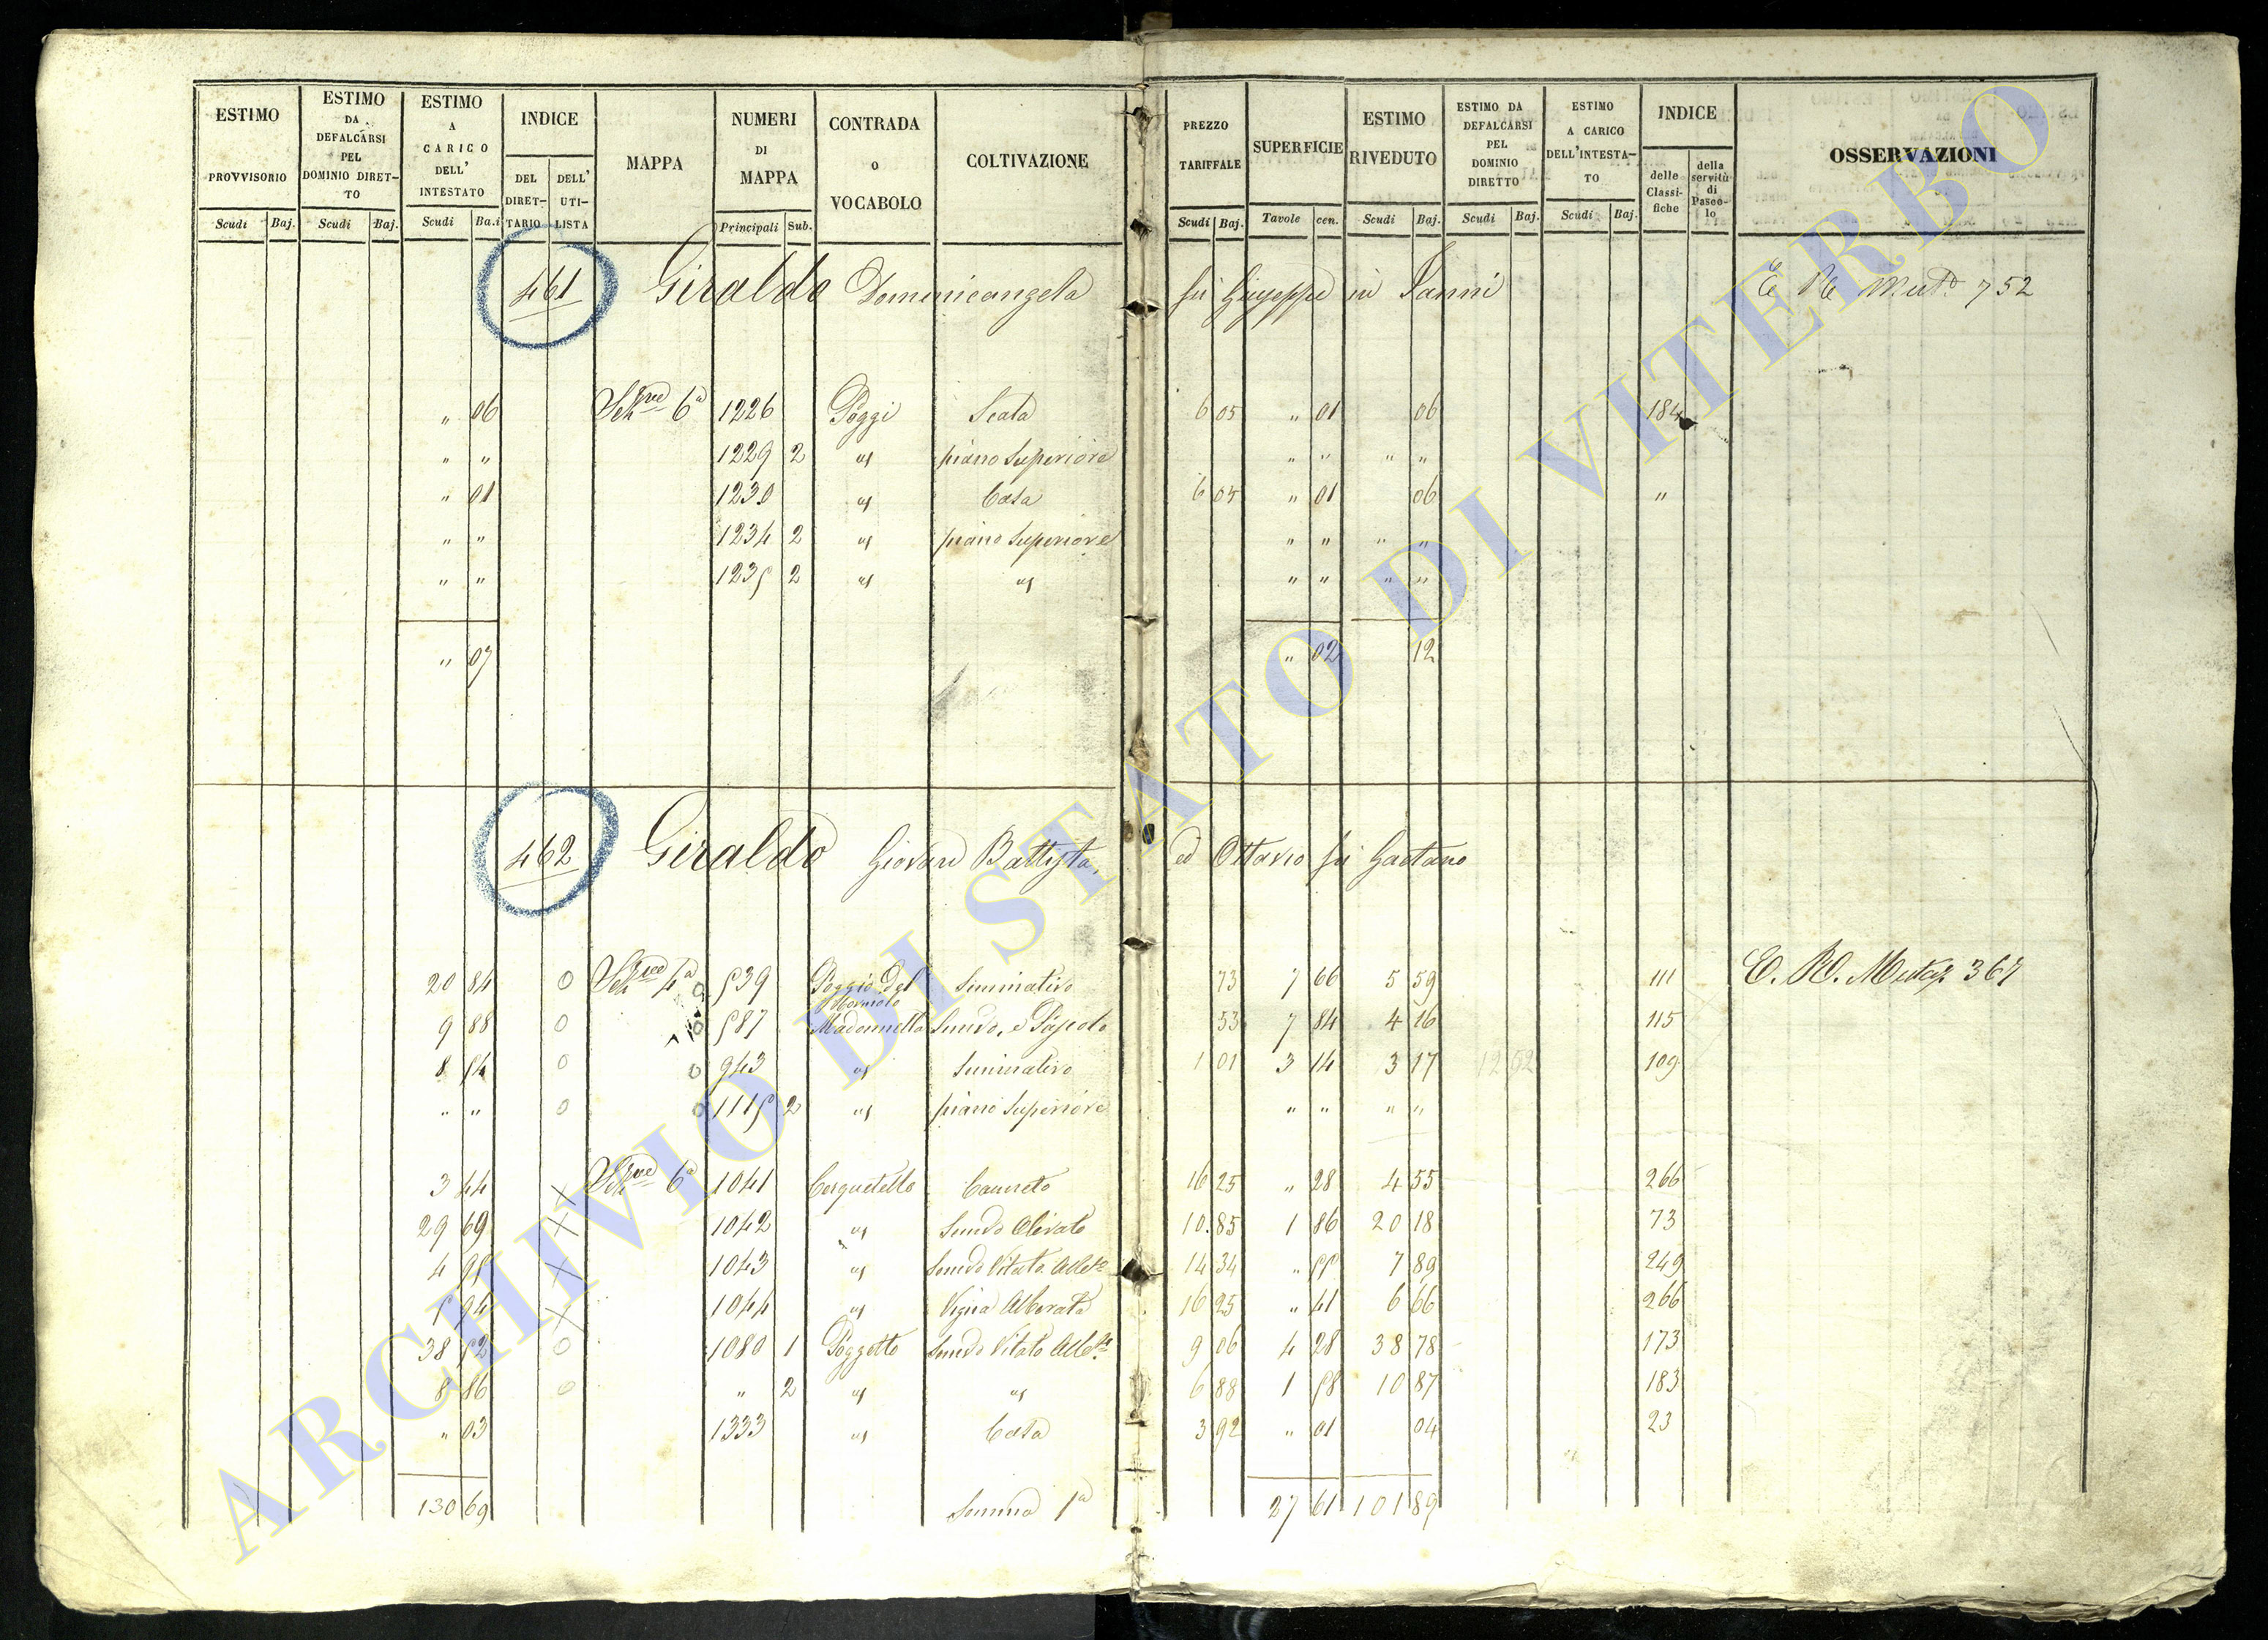 ESTIMO PROVVISORIO Scudi Baj.
ESTIMO DA DEFALCARSI PEL DOMINIO DIRETTO Scudi Baj.
ESTIMO A CARICO DELL' INTESTATO Scudi Ba.i
INDICE DEL DIRETTARIO DELL' UTILISTA
MAPPA
NUMERI DI MAPPA Principali Sub.
CONTRADA o VOCABOLO
COLTIVAZIONE
PREZZO TARIFFALE Scudi Baj.
SUPERFICIE Tavole cen.
ESTIMO RIVEDUTO Scudi Baj.
ESTIMO DA DEFALCARSI PEL DOMINIO DIRETTO Scudi Baj.
ESTIMO A CARICO DELL'INTESTATO Scudi Baj.
INDICE delle Classifiche della servitù di Pascolo
OSSERVAZIONI
461 Giraldo Domenicangela fu Giuseppe in Ianni 752
" 06 6ª 1226 Poggi Scala 6 05 " 01 06 184
" " 1229 2 " piano Superiore " " " "
" 01 1230 " Casa 6 05 " 01 06 "
" " 1234 2 " piano Superiore " " " "
" " 1235 2 " " " " " "
" 07 " 02 12
462 Giraldo Giovanni Battista, ed Ottavio fu Gaetano
20 84 0 4ª 0 539 Poggio del Seminativo 73 7 66 5 59 111
9 88 0 0 587 Madonnella Semvo. e Pascolo 53 7 84 4 16 115
8 54 0 0 943 " Seminativo 1 01 3 14 3 17 12 92 109
" " 0 0 1115 2 " piano Superiore " " " "
3 44 X 6ª 1041 Cerquetello Canneto 16 25 " 28 4 55 266
29 69 X 1042 " Semvo Olivato 10.85 1 86 20 18 73
4 98 X 1043 " Semvo Vitato 14 34 " 55 7 89 249
5 94 X 1044 " Vigna Alberata 16 25 " 41 6 66 266
38 52 0 1080 1 Poggetto Semvo Vitato 9 06 4 28 38 78 173
8 86 0 " 2 " " 6 88 1 58 10 87 183
" 03 1333 " Casa 3 92 " 01 04 23
130 69 Somma 1ª 27 61 101 89
ARCHIVIO DI STATO DI VITERBO